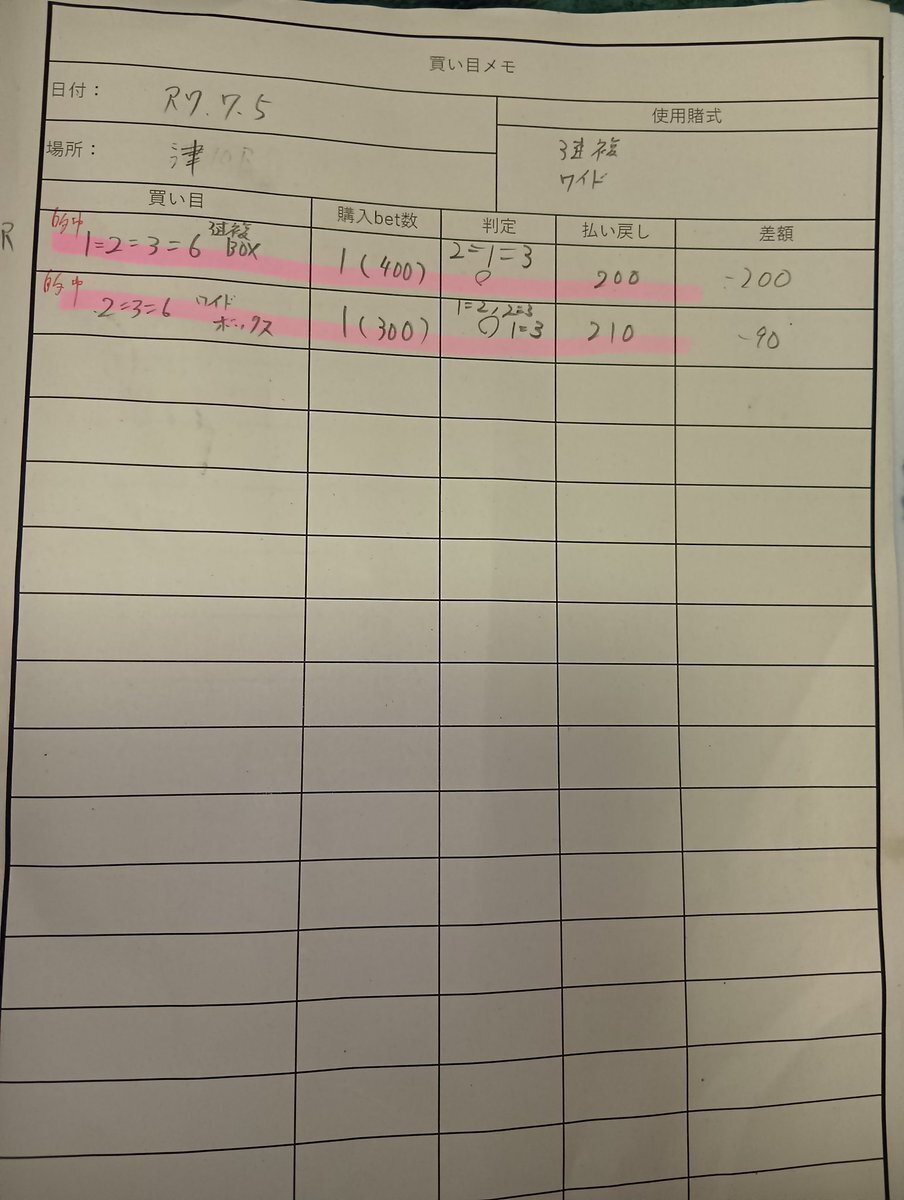 買い目メモ
日付： R7.7.5
使用賭式
場所： 津
3連複
ワイド
買い目 購入bet数 判定 払い戻し 差額
R
的中
1=2=3=6 3連複 BOX 1(400) 2=1=3 ○ 200 -200
的中
2=3=6 ワイド ボックス 1(300) 1=2, 2=3 ○ 1=3 210 -90